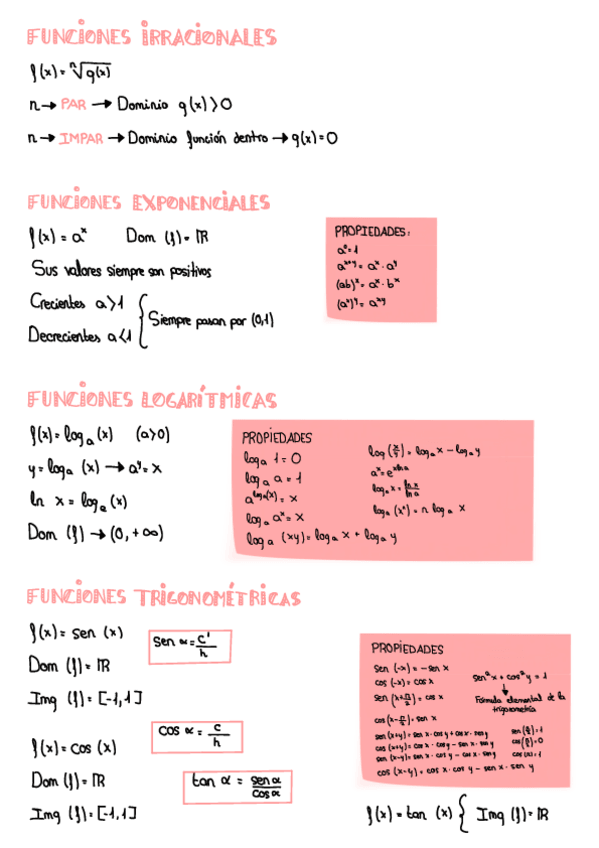 FUNCIONES IRRACIONALES
f(x) = ⁿ√g(x)
n → PAR → Dominio g(x) > 0
n → IMPAR → Dominio función dentro → g(x) = 0
FUNCIONES EXPONENCIALES
f(x) = aˣ Dom (f) = ℝ
Sus valores siempre son positivos
Crecientes a > 1
Decrecientes a < 1
{ Siempre pasan por (0,1)
PROPIEDADES:
a⁰ = 1
aˣ⁺ʸ = aˣ · aʸ
(ab)ˣ = aˣ · bˣ
(aˣ)ʸ = aˣʸ
FUNCIONES LOGARÍTMICAS
f(x) = logₐ (x) (a>0)
y = logₐ (x) → aʸ = x
ln x = logₑ (x)
Dom (f) → (0, +∞)
PROPIEDADES
logₐ 1 = 0
logₐ a = 1
a^logₐ(x) = x
logₐ aˣ = x
logₐ (xy) = logₐ x + logₐ y
log (x/y) = logₐ x - logₐ y
aˣ = e^(x ln a)
logₐ x = ln x / ln a
logₐ (xⁿ) = n logₐ x
FUNCIONES TRIGONOMÉTRICAS
f(x) = sen (x)
Dom (f) = ℝ
Img (f) = [-1,1]
sen α = c' / h
f(x) = cos (x)
Dom (f) = ℝ
Img (f) = [-1,1]
cos α = c / h
tan α = sen α / cos α
PROPIEDADES
sen (-x) = -sen x
cos (-x) = cos x
sen (x+π/2) = cos x
cos (x-π/2) = sen x
sen (x+y) = sen x · cos y + cos x · sen y
cos (x+y) = cos x · cos y - sen x · sen y
sen (x-y) = sen x · cos y - cos x · sen y
cos (x-y) = cos x · cos y - sen x · sen y
sen² x + cos² y = 1
Fórmula elemental de la
trigonometría
sen (π/2) = 1
cos (π/2) = 0
f(x) = tan (x) { Img (f) = ℝ